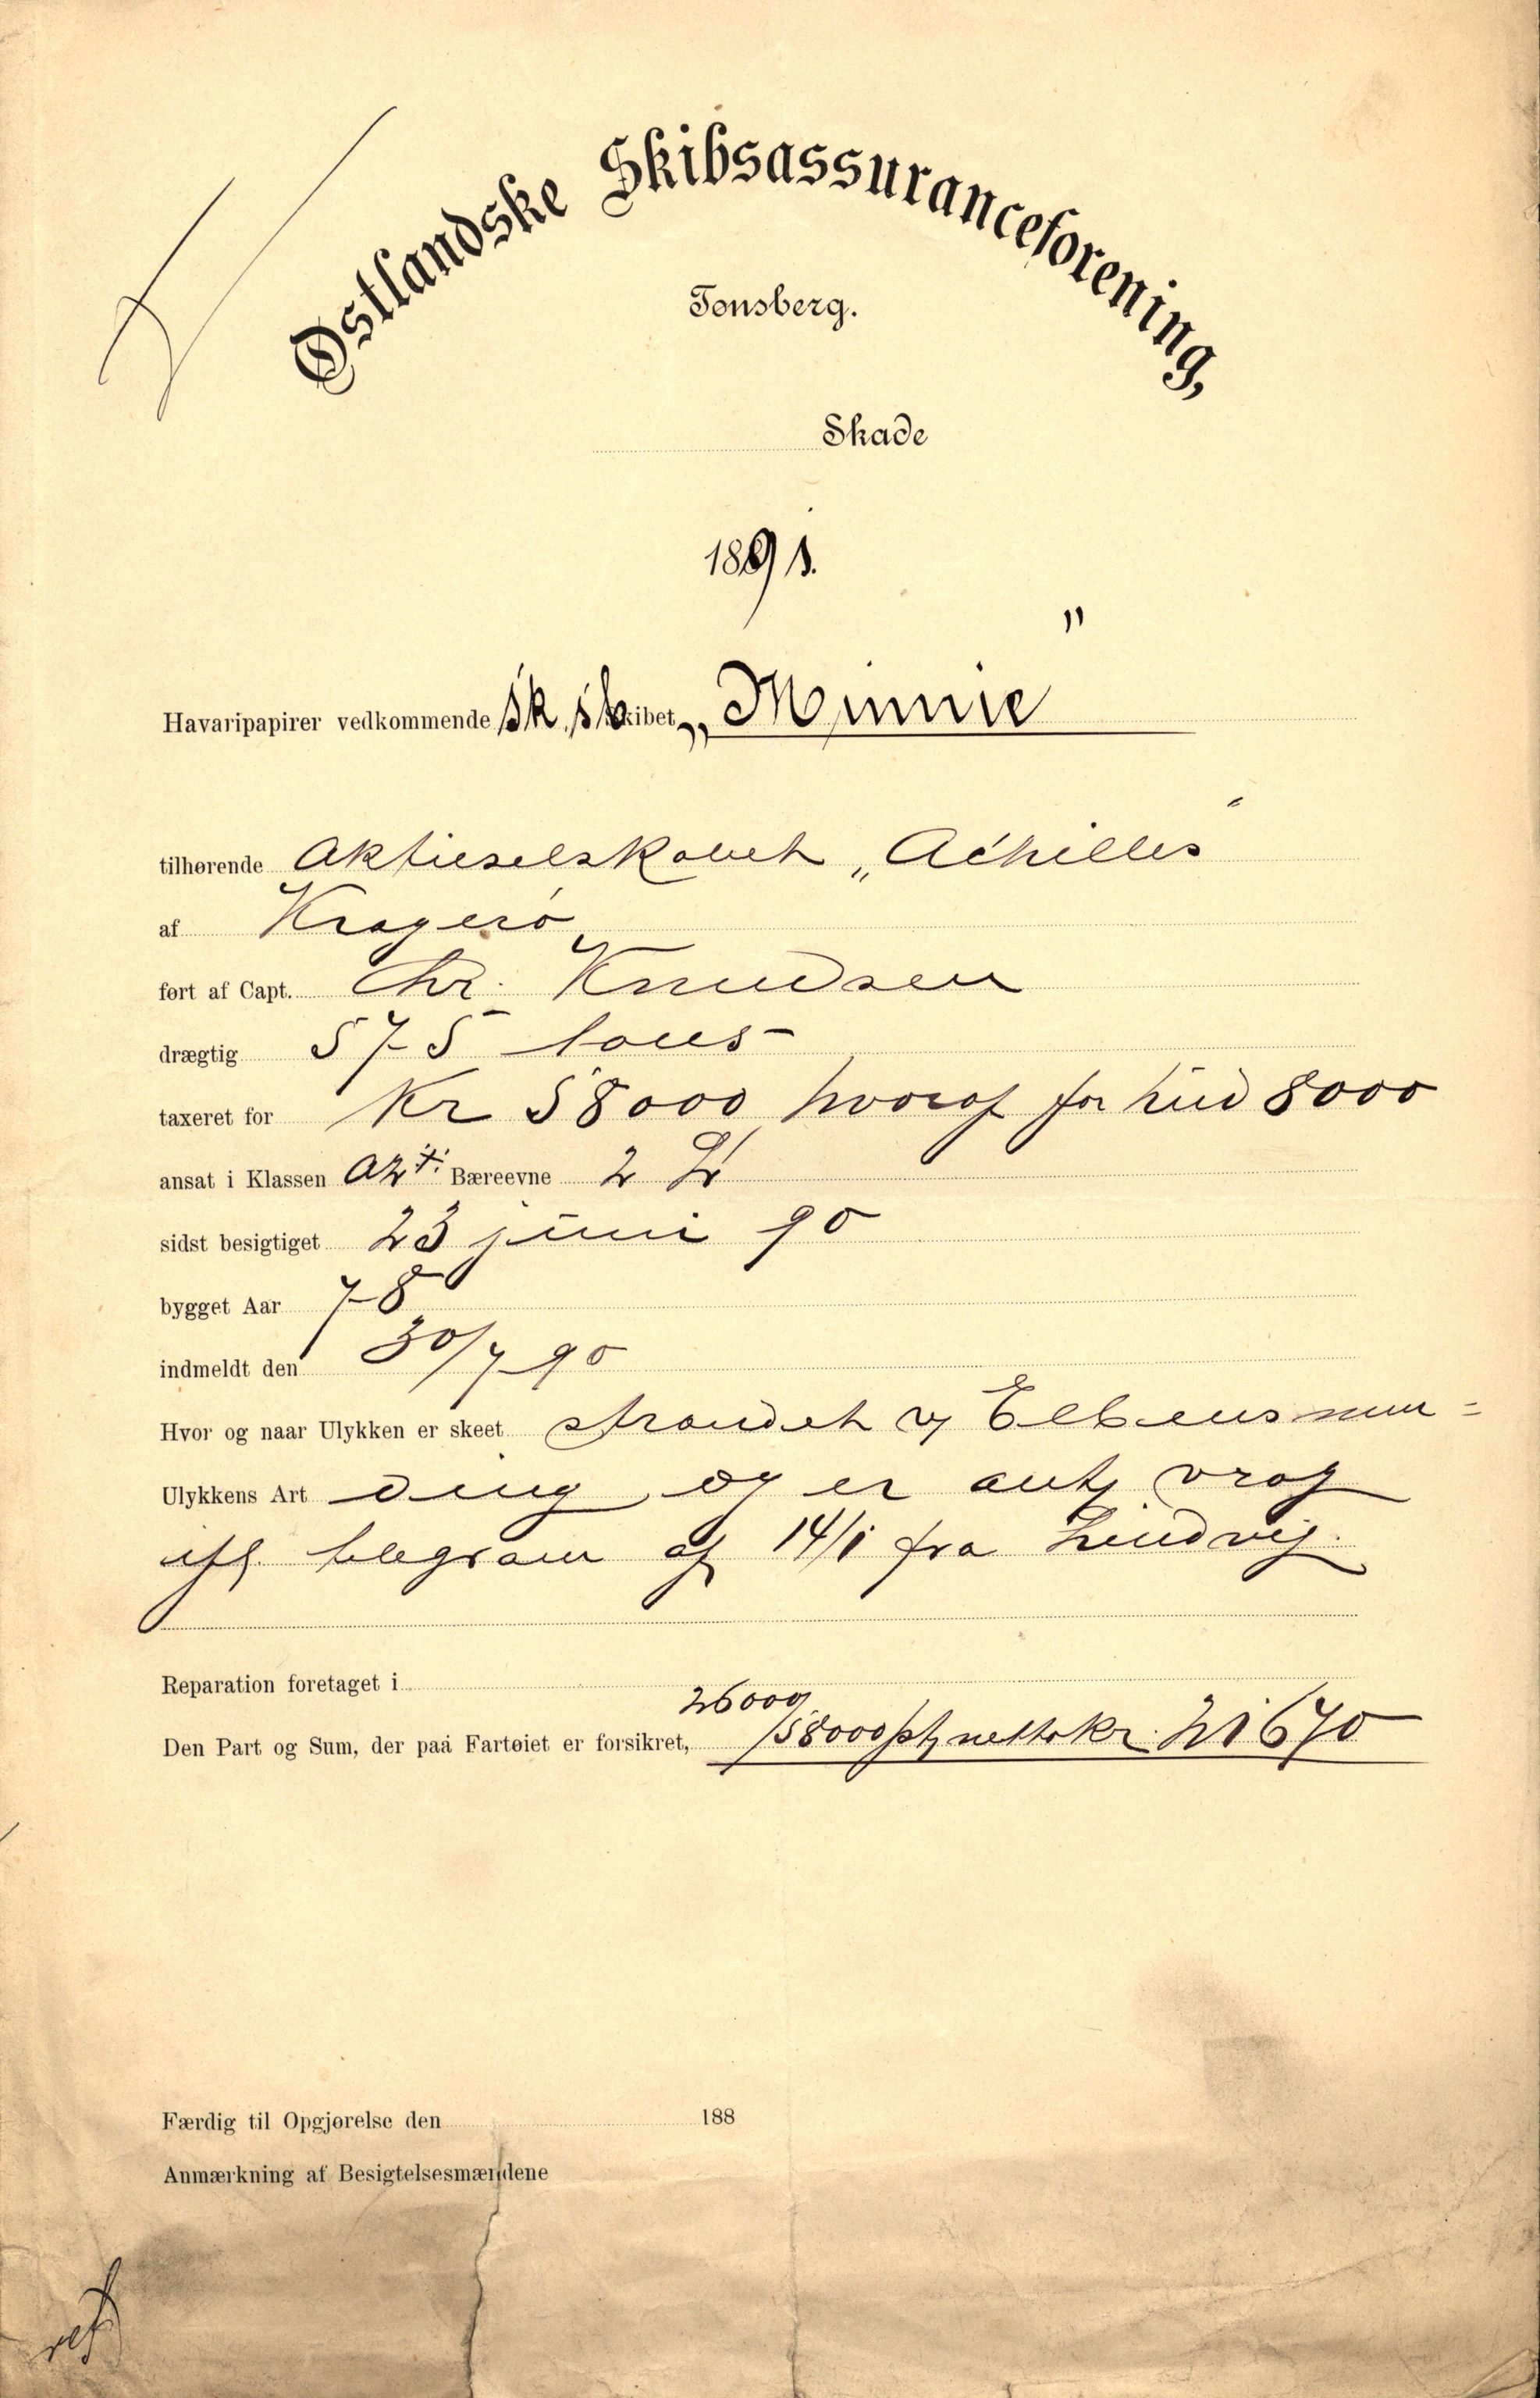 Østlandske Skibsassuranceforening,
Tønsberg.
Skade
1891.
Havaripapirer vedkommende Sk. sk skibet „Minnie"
tilhørende Aktieselskabet „Achilles"
af Kragerø
ført af Capt. Chr. Knudsen
drægtig 575 tons
taxeret for Kr 58000 hvoraf for hud 8000
ansat i Klassen A2 Bæreevne 2
sidst besigtiget 23 juni 90
bygget Aar 78
indmeldt den 30/7 90
Hvor og naar Ulykken er skeet strandet v/ Elbens mun=
Ulykkens Art ding og er vrag
ifl. telegram af 14/1 fra Lindvig.
Reparation foretaget i
Den Part og Sum, der paa Fartøiet er forsikret, 26000/58000 pt netto kr. 21670
Færdig til Opgjørelse den 188
Anmærkning af Besigtelsesmændene